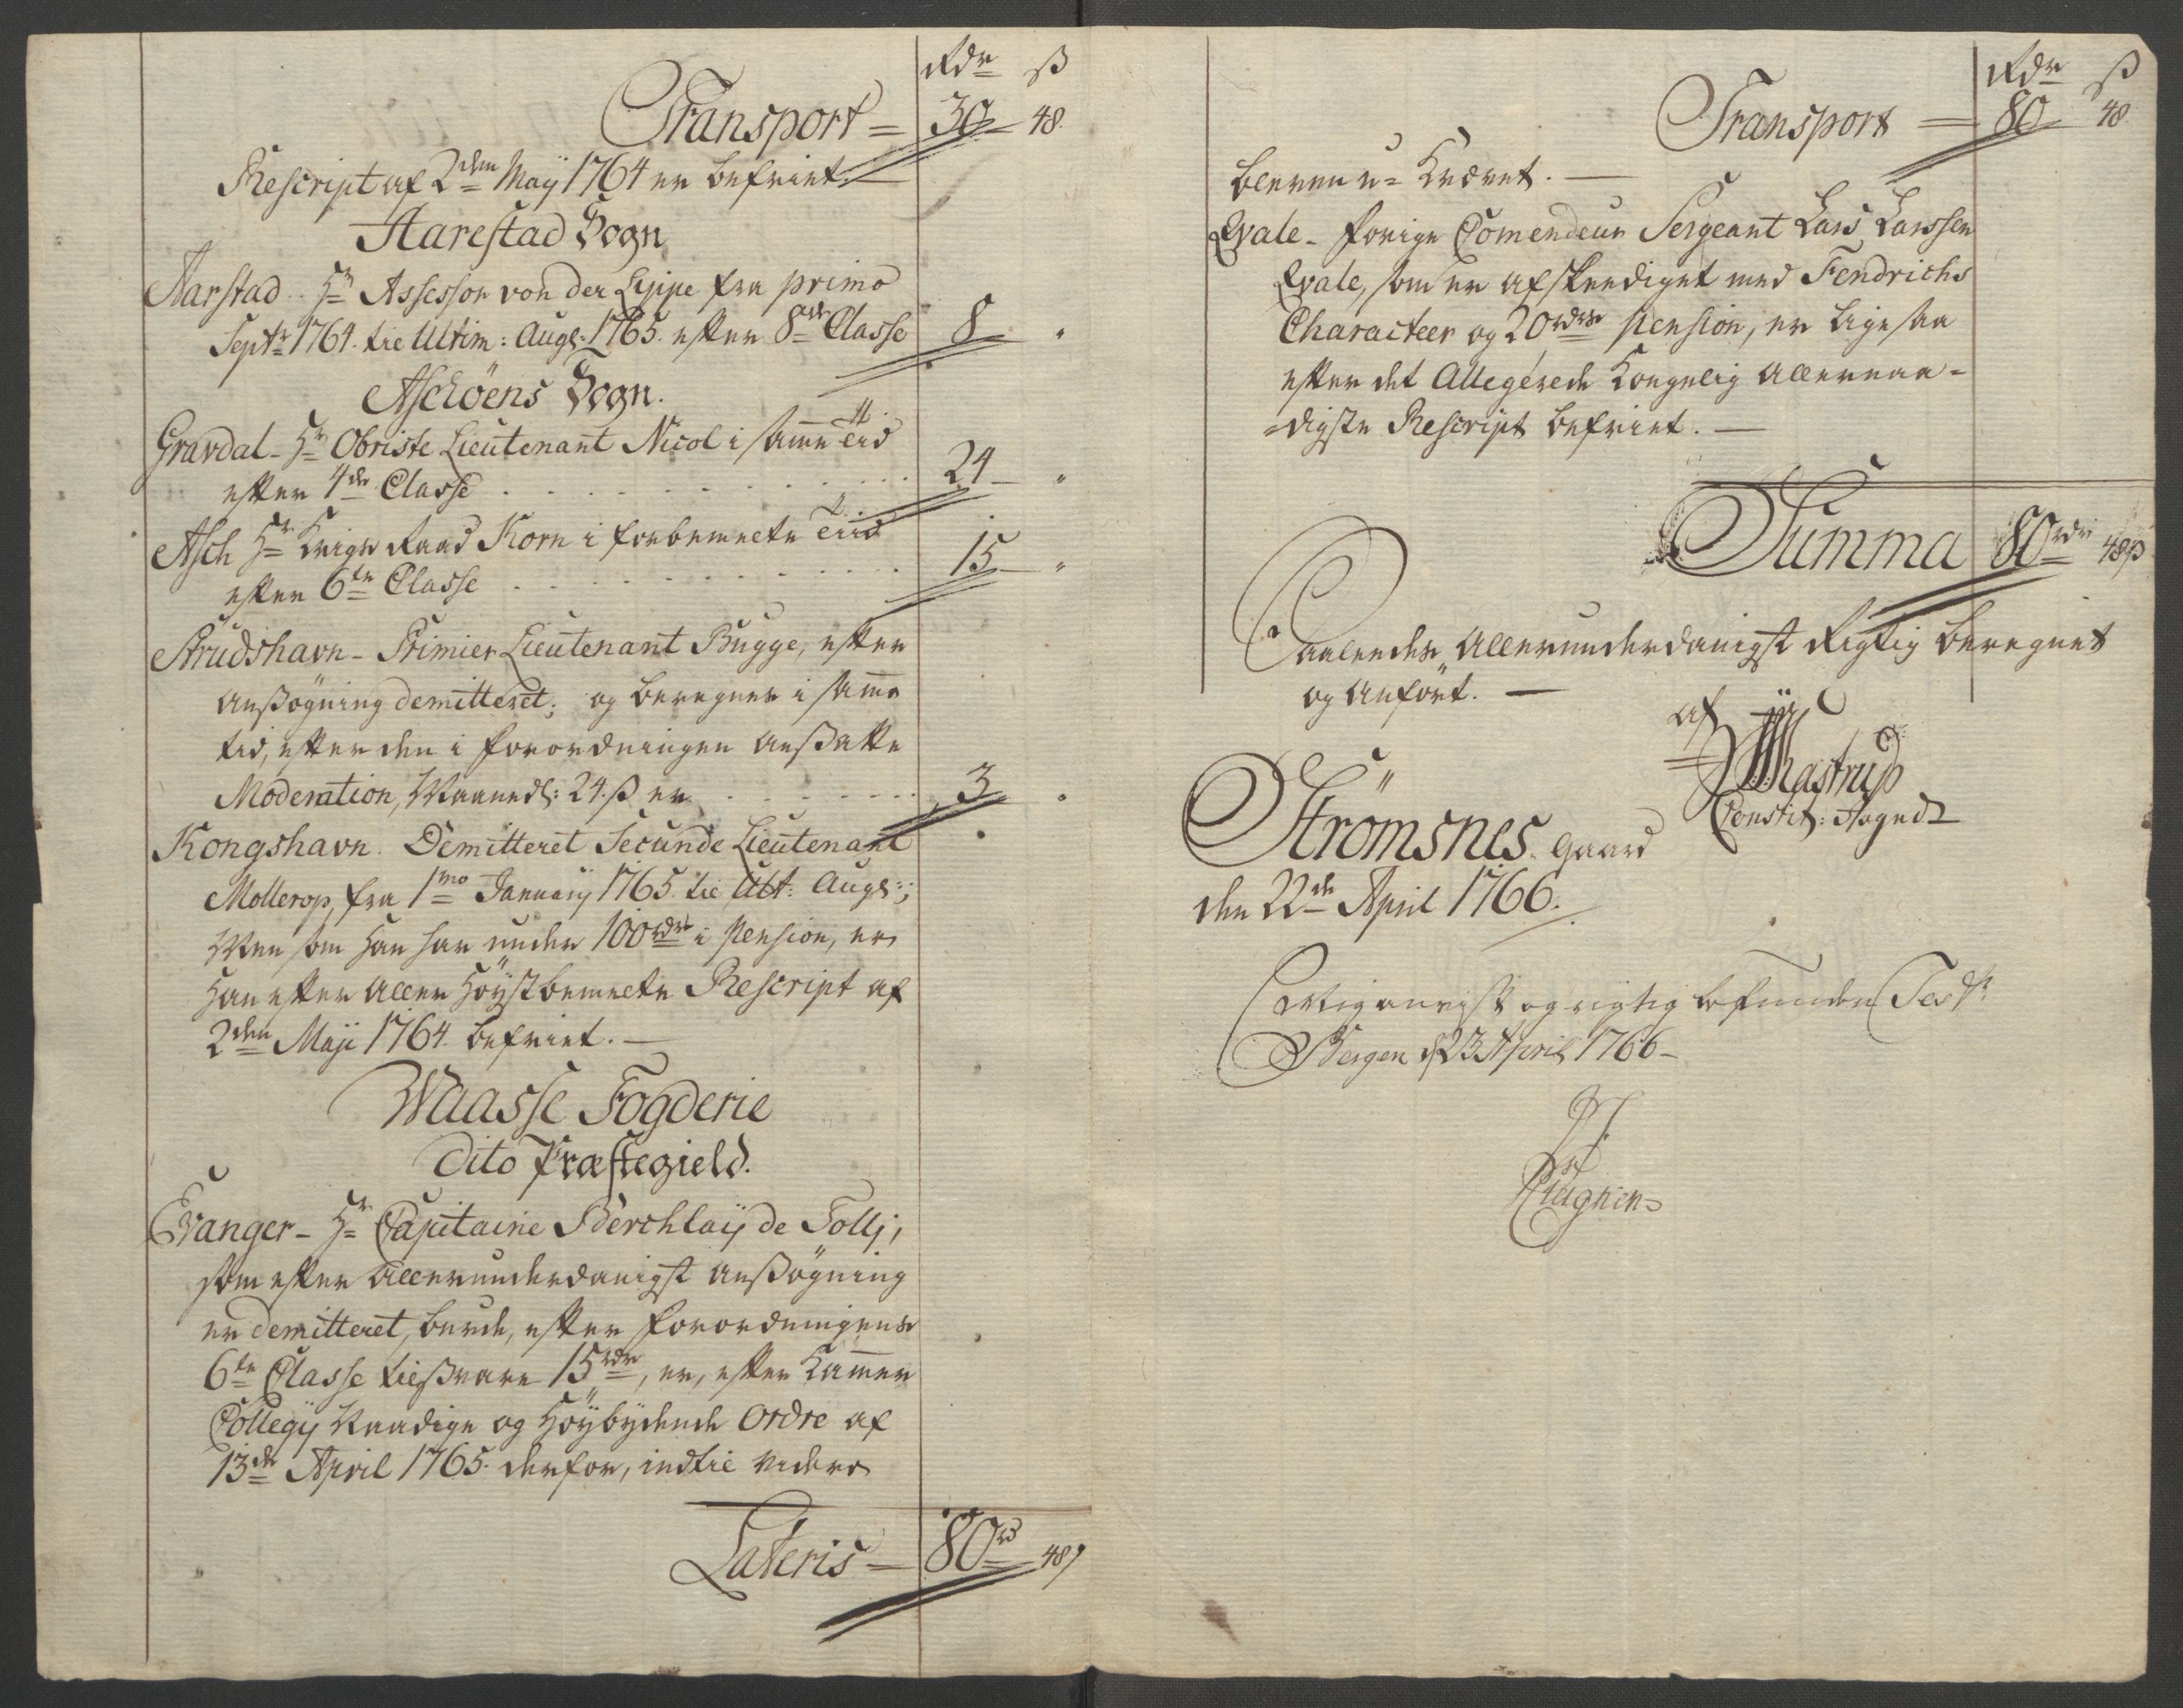 Rdr ß
Transport = 30 48.
Rescript af 2den Maÿ 1764 er befriet.
Aarestad Sogn
Aarstad. Hr Assessor von der Lippe fra primo
Septr 1764. til Ultim: Augs: 1765. efter 8de Classe 8 "
Aschöens Sogn.
Gravdal - Hr Obriste Lieutenant Nicol i samme Tid
efter 4de Classe . . . . 24 "
Asch Hr Krigs Raad Korn i forbemelte Tiid
efter 6te Classe . . . . 15 "
Strudshavn - Primier Lieutenant Bugge, efter
Ansøgning demitteret; og beregnes i samme
tid, efter den i forordningen ansatte
Moderation, Maanedl: 24. ß er . . . . 3 "
Kongshavn. Demitteret Secunde Lieutenant
Mollerop, fra 1mo Januarÿ 1765. til Ult: Augs:;
Men som han har under 100rdr i Pension, er
han efter Aller Höystbemelte Rescript af
2den Maji 1764. befriet.
Waasse Fogderie
Dito Præstegield.
Evanger - Hr Capitaine Berchlaÿ de Tollj,
som efter Allerunderdanigst Ansögning
er demitteret, burde, efter forordningens
6te Classe tilsvare 15rdr, er, efter Kammer
Collegij Naadige og Höÿbÿdende Ordre af
13de April 1765. derfor, indtil videre
Lateris = 80rd 48ß
Rdr ß
Transport = 80 48
bleven u-Krævet.
Qvale - forige Comendeur Sergeant Lars Larssen
Qvale, som er afskeediget med Fendrichs
Characteer og 20rdrs Pension, er ligesaa
efter det Allegerede Kongelig Allernaa-
-digste Rescript befriet.
Summa 80rdr 48ß
Saaledes Allerunderdanigst Rigtig beregnet
og Anfört.
af
Hastrup
Constit: Foged
Strömsnes Gaard
den 22de April 1766.
og rigtig befunden Test:
Bergen d 23 April 1766